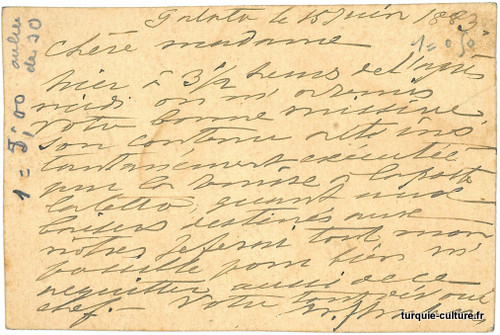 Galata le 15 Juin 1883
Chère madame
hier à 3 1/2 heures de l'après
midi on m'a remis
votre bonne missive,
son contenu a été ins
tantanément exécuté
par la remise à la poste
la lettre, quant aux
baisers destinés aux
nôtres je ferai tout mon
possible pour bien m'
acquitter aussi de ce
chef. - Votre tout dévoué
1 = 5,00 au lieu
de 20
1 = 0 50
turquie-culture.fr